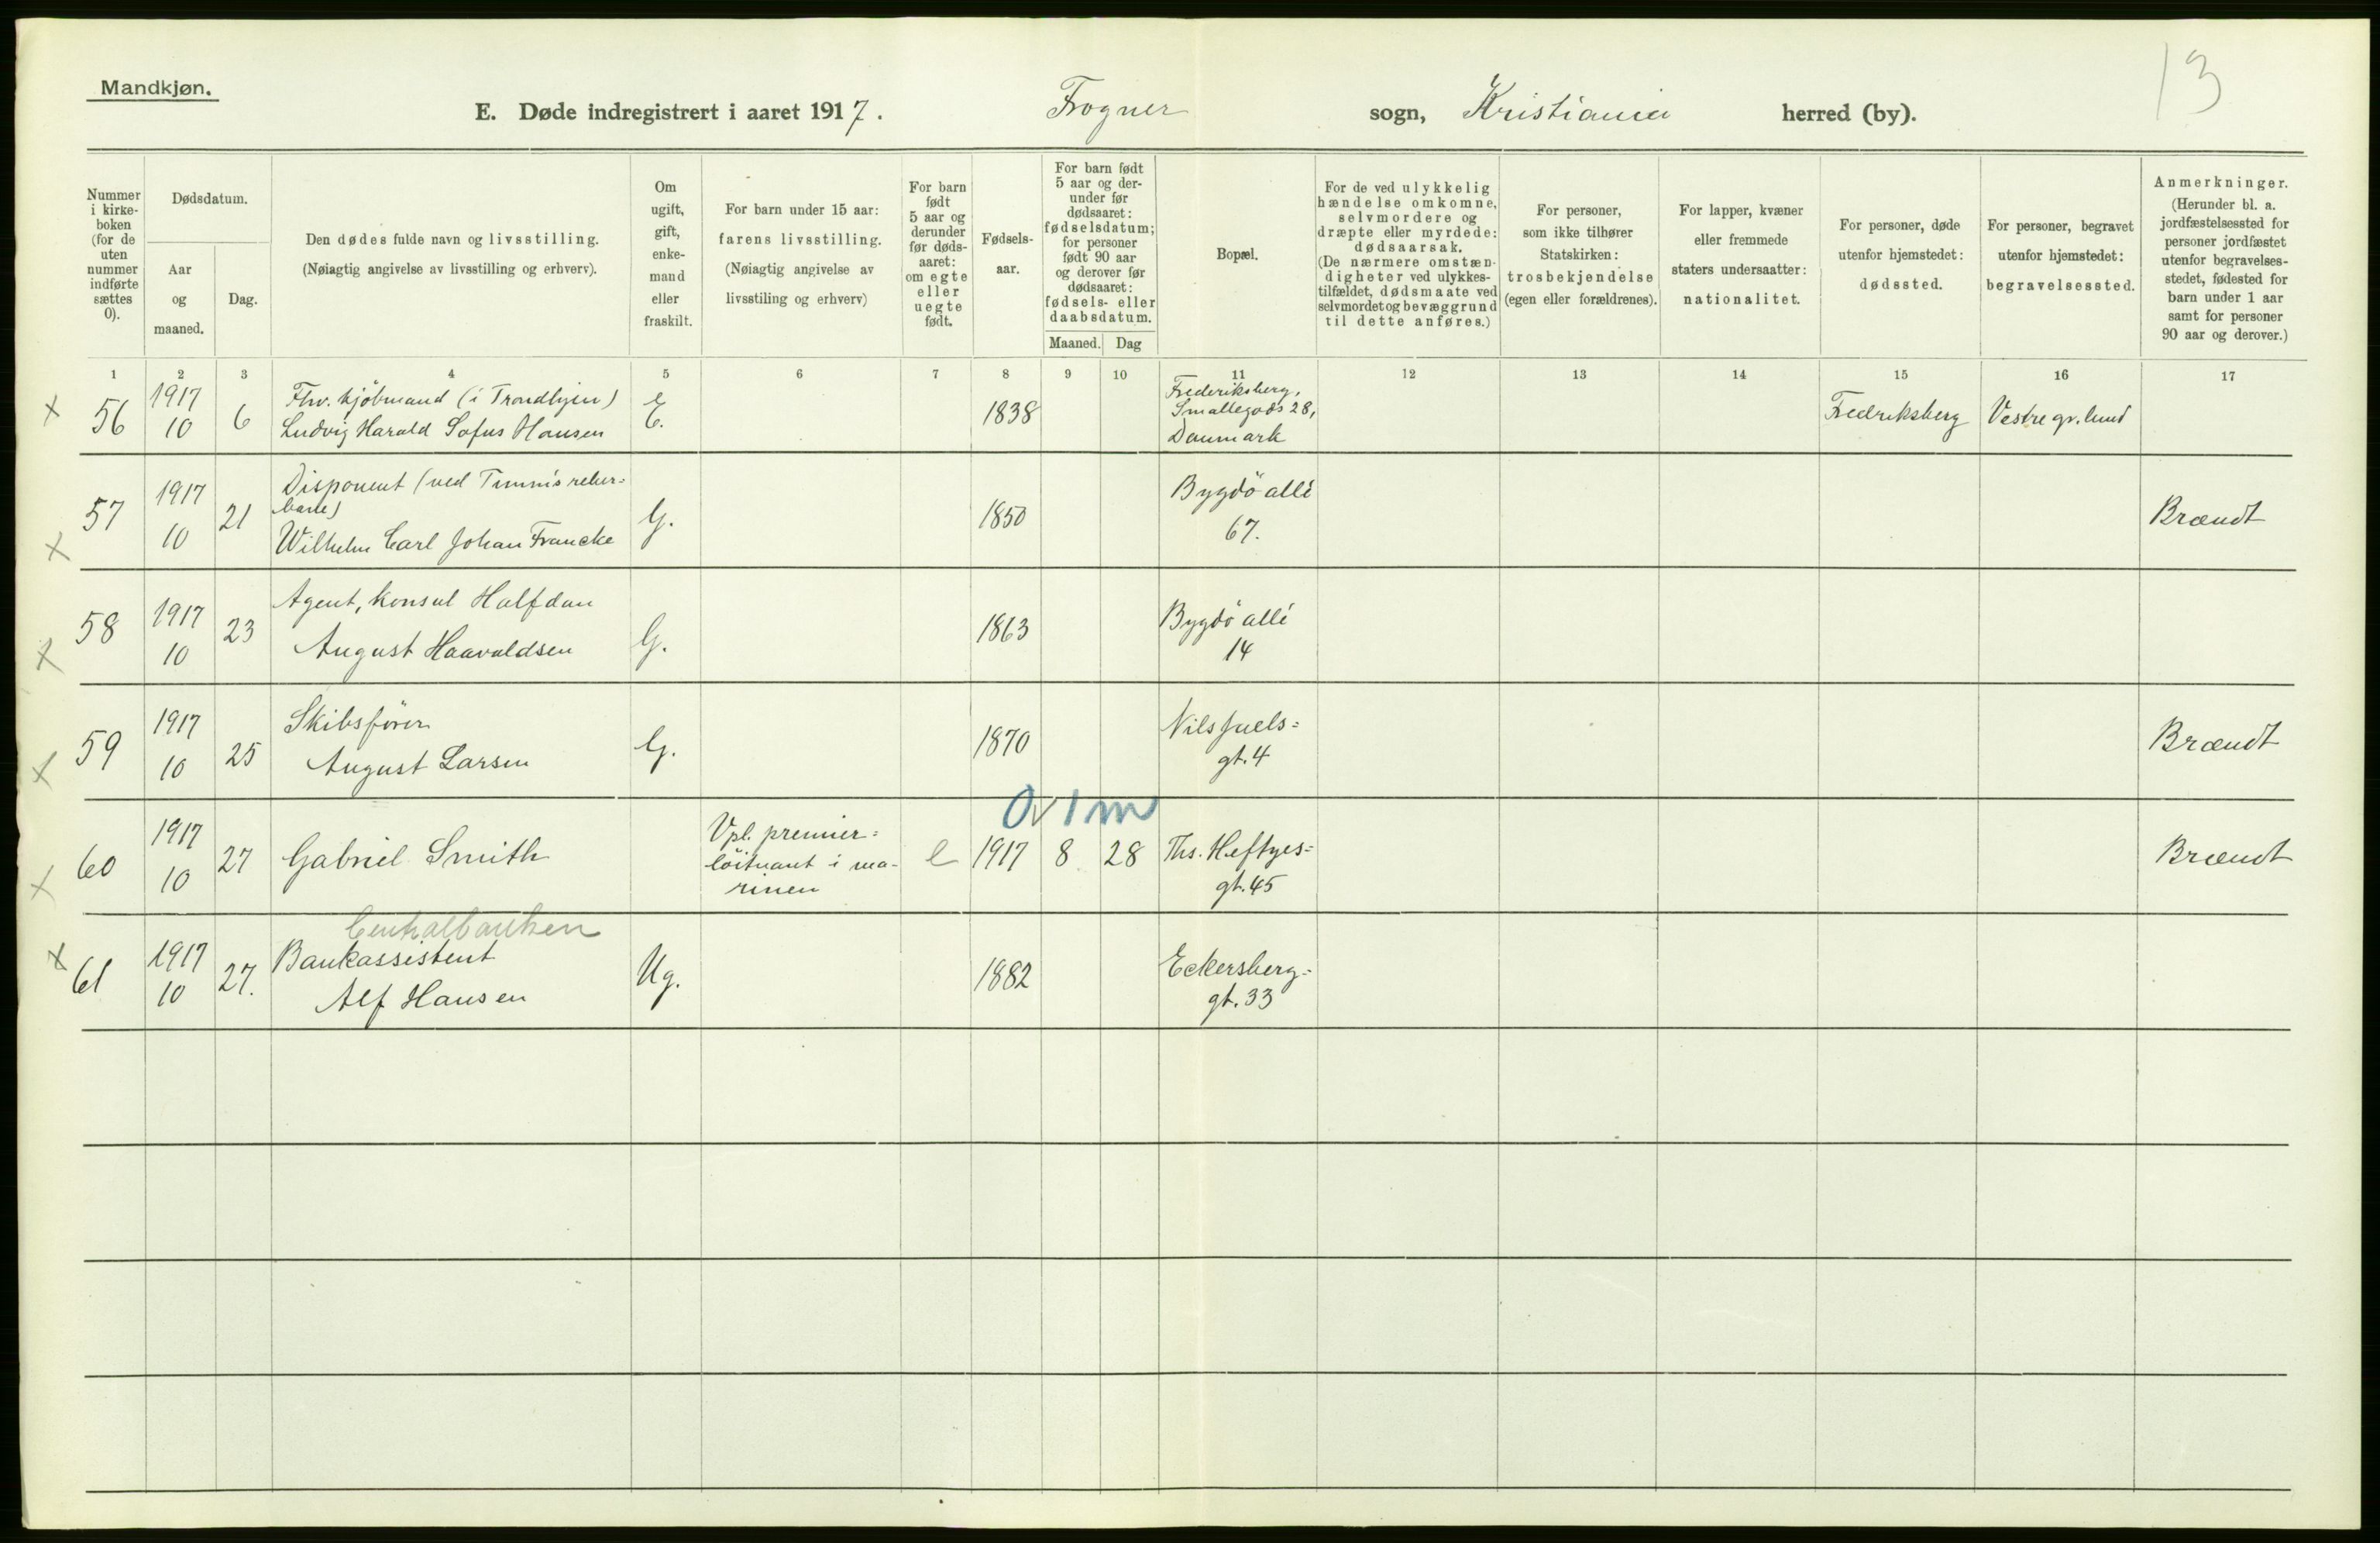 13
Mandkjøn.
E. Døde indregistrert i aaret 1917. Frogner sogn, Kristiania herred (by).
Nummer
i kirke-
boken
(for de
uten
nummer
indførte
sættes
0).
Dødsdatum.
Aar
og
maaned.
Dag.
Den dødes fulde navn og livsstilling.
(Nøiagtig angivelse av livsstilling og erhverv).
Om
ugift,
gift,
enke-
mand
eller
fraskilt.
For barn under 15 aar:
farens livsstilling.
(Nøiagtig angivelse av
livsstiling og erhverv)
For barn
født
5 aar og
derunder
før døds-
aaret:
om egte
eller
uegte
født.
Fødsels-
aar.
For barn født
5 aar og der-
under før
dødsaaret:
fødselsdatum;
for personer
født 90 aar
og derover før
dødsaaret:
fødsels- eller
daabsdatum.
Maaned. Dag
Bopæl.
For de ved ulykkelig
hændelse omkomne,
selvmordere og
dræpte eller myrdede:
dødsaarsak.
(De nærmere omstæn-
digheter ved ulykkes-
tilfældet, dødsmaate ved
selvmordet og bevæggrund
til dette anføres.)
For personer,
som ikke tilhører
Statskirken:
trosbekjendelse
(egen eller forældrenes).
For lapper, kvæner
eller fremmede
staters undersaatter:
nationalitet.
For personer, døde
utenfor hjemstedet:
dødssted.
For personer, begravet
utenfor hjemstedet:
begravelsessted.
Anmerkninger.
(Herunder bl. a.
jordfæstelsessted for
personer jordfæstet
utenfor begravelses-
stedet, fødested for
barn under 1 aar
samt for personer
90 aar og derover.)
1 2 3 4 5 6 7 8 9 10 11 12 13 14 15 16 17
x 56
1917
10
6
Fhv. kjöbmand (i Trondhjem)
Ludvig Harald Sofus Hansen
E.
1838
Frederiksberg,
Smallegads 28,
Danmark
Fredriksberg
Vestre gr. lund
x 57
1917
10
21
Disponent (ved Timm's reber-
bane)
Wilhelm Carl Johan Francke
G.
1850
Bygdö allé
67.
Brændt
x 58
1917
10
23
Agent, konsul Halfdan
August Haavaldsen
G.
1863
Bygdö allé
14
x 59
1917
10
25
Skibsförer
August Larsen
G.
1870
Nils Juels=
gt. 4
Brændt
x 60
1917
10
27
Gabriel Smith
Vpl. premier=
löitnant i ma-
rinen
e
Ov 1 m
1917 8 28
Ths. Heftyes=
gt. 45
Brændt
x 61
1917
10
27.
Centralbanken
Bankassistent
Alf Hansen
Ug.
1882
Eckersberg=
gt. 33